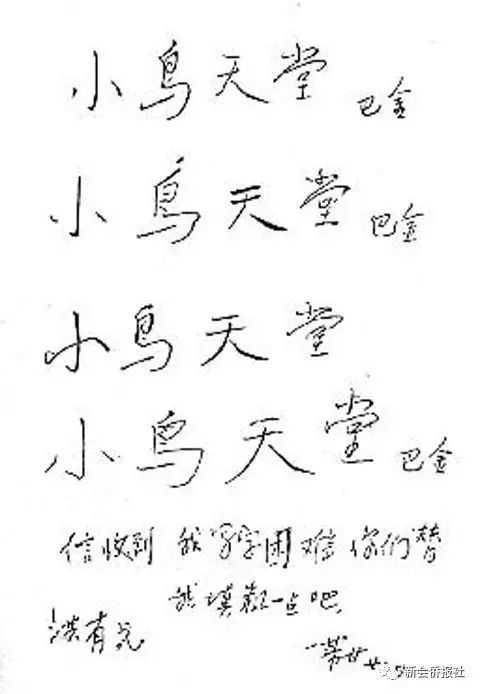 小鸟天堂 巴金
小鸟天堂 巴金
小鸟天堂
小鸟天堂 巴金
信收到 我写字困难 你们替
我填粗一点吧
洪有光
新会侨报社